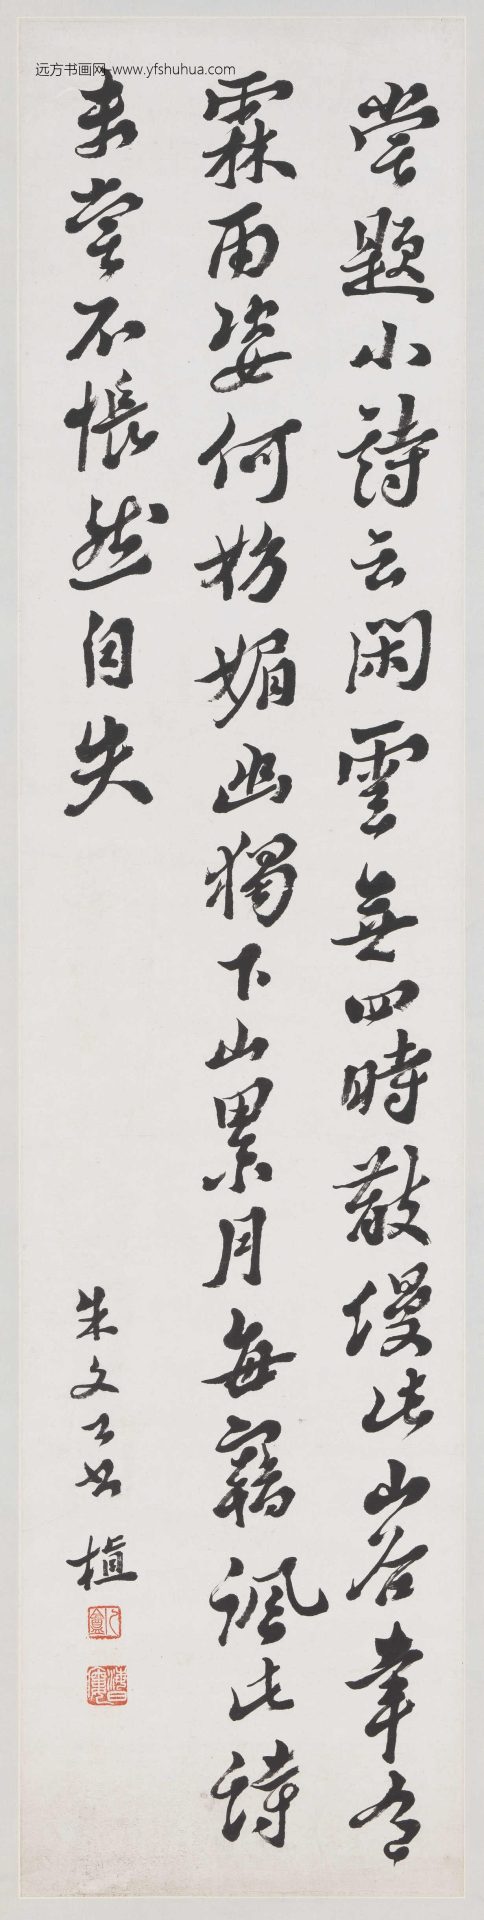 远方书画网-www.yfshuhua.com
嘗題小詩云閑雲無四時散漫此山谷幸乏
霖雨姿何妨媚幽獨下山累月每竊諷此詩
未嘗不悵然自失
朱文公 植